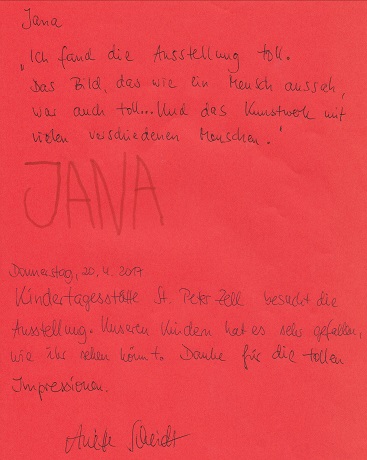 Jana
„Ich fand die Ausstellung toll.
Das Bild, das wie ein Mensch aussah,
war auch toll... Und das Kunstwerk mit
vielen verschiedenen Menschen."
JANA
Donnerstag, 20.4.2017
Kindertagesstätte St. Peter Zell besucht die
Ausstellung. Unseren Kindern hat es sehr gefallen,
wie ihr sehen könnt. Danke für die tollen
Impressionen.